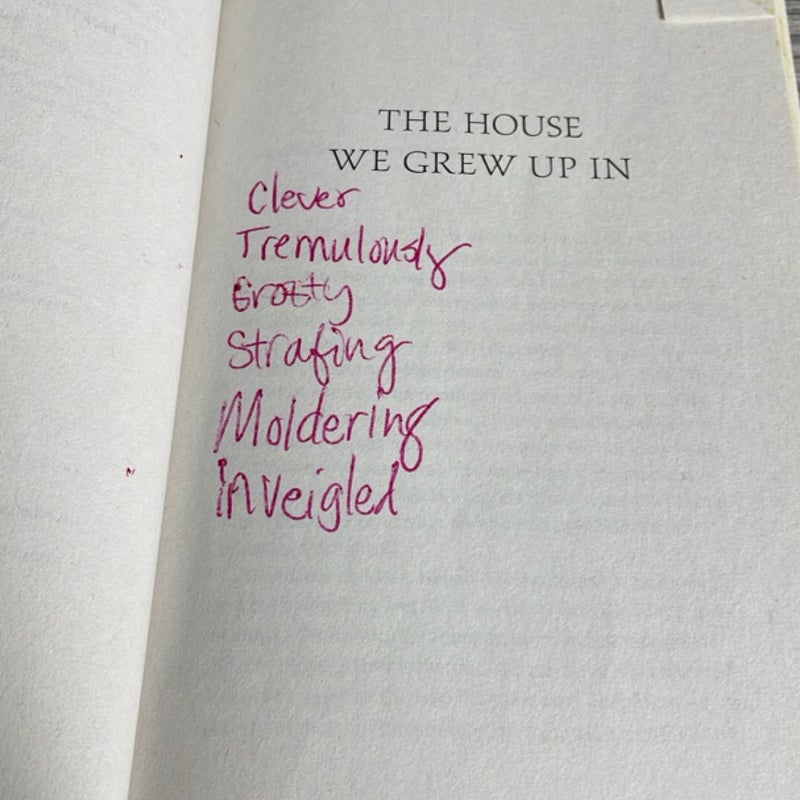 THE HOUSE
WE GREW UP IN
Clever
Tremulously
Grotty
Strafing
Moldering
inveigled